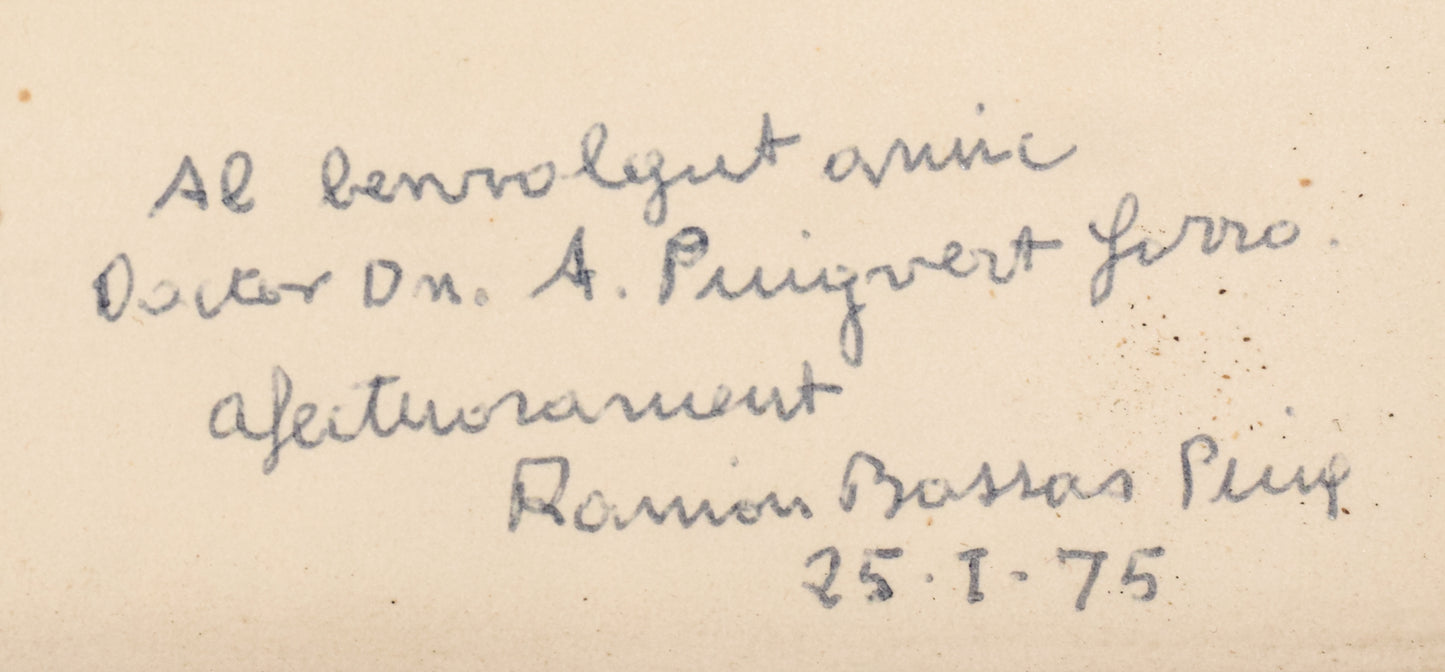 Al benvolgut amic
Doctor Dn. A. Puigvert Gorro.
afectuosament
Ramon Bassas Puig
25·I·75